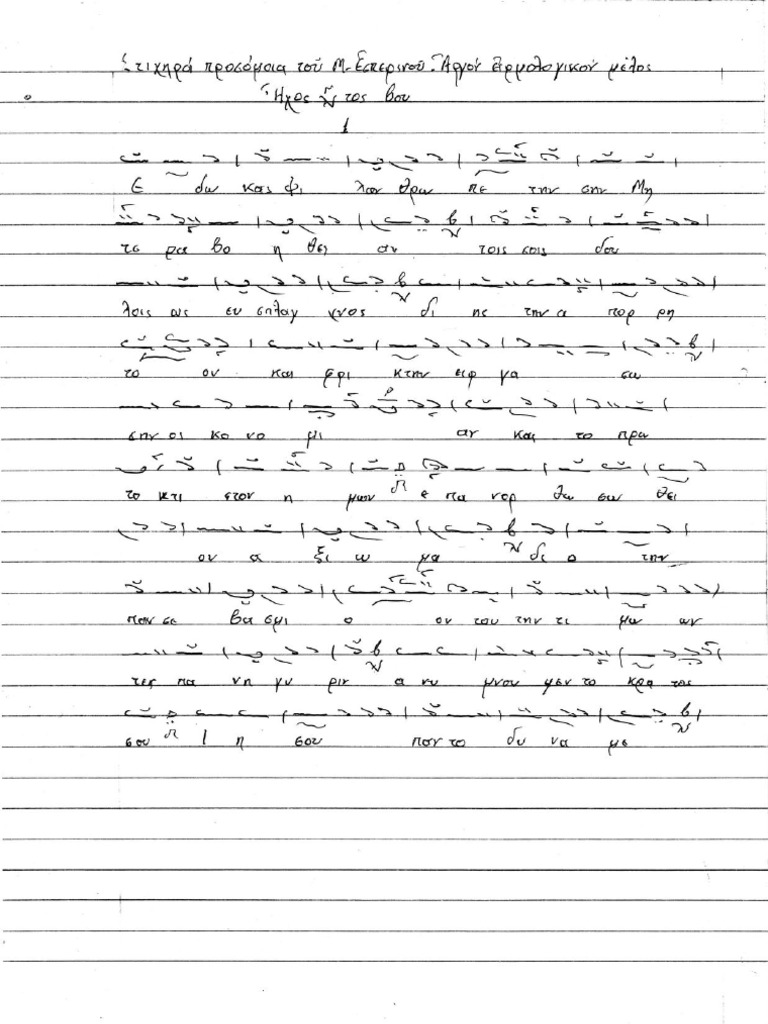 Στιχηρά προσόμοια τού Μ. Εσπερινού. Αργόν ειρμολογικόν μέλος
Ήχος τος Βου
1
Ε δω κας φι λαν θρω πε την σην Μη
τε ρα βο η θει αν τοις σοις δου
λοις ως ευ σπλαγ χνος δι ης την α πορ ρη
το ον και φρι κτην ειρ γα σω
σην οι κο νο μι αν και το πρω
το κτι στον η μων ε πα νορ θω σω θει
ον α ξι ω μα δι ο την
παν σε βα σμι ο ον του την τι μω ων
τες πα νη γυ ριν α νυ μνου μεν το κρα τος
σου Ι η σου παν το δυ να με